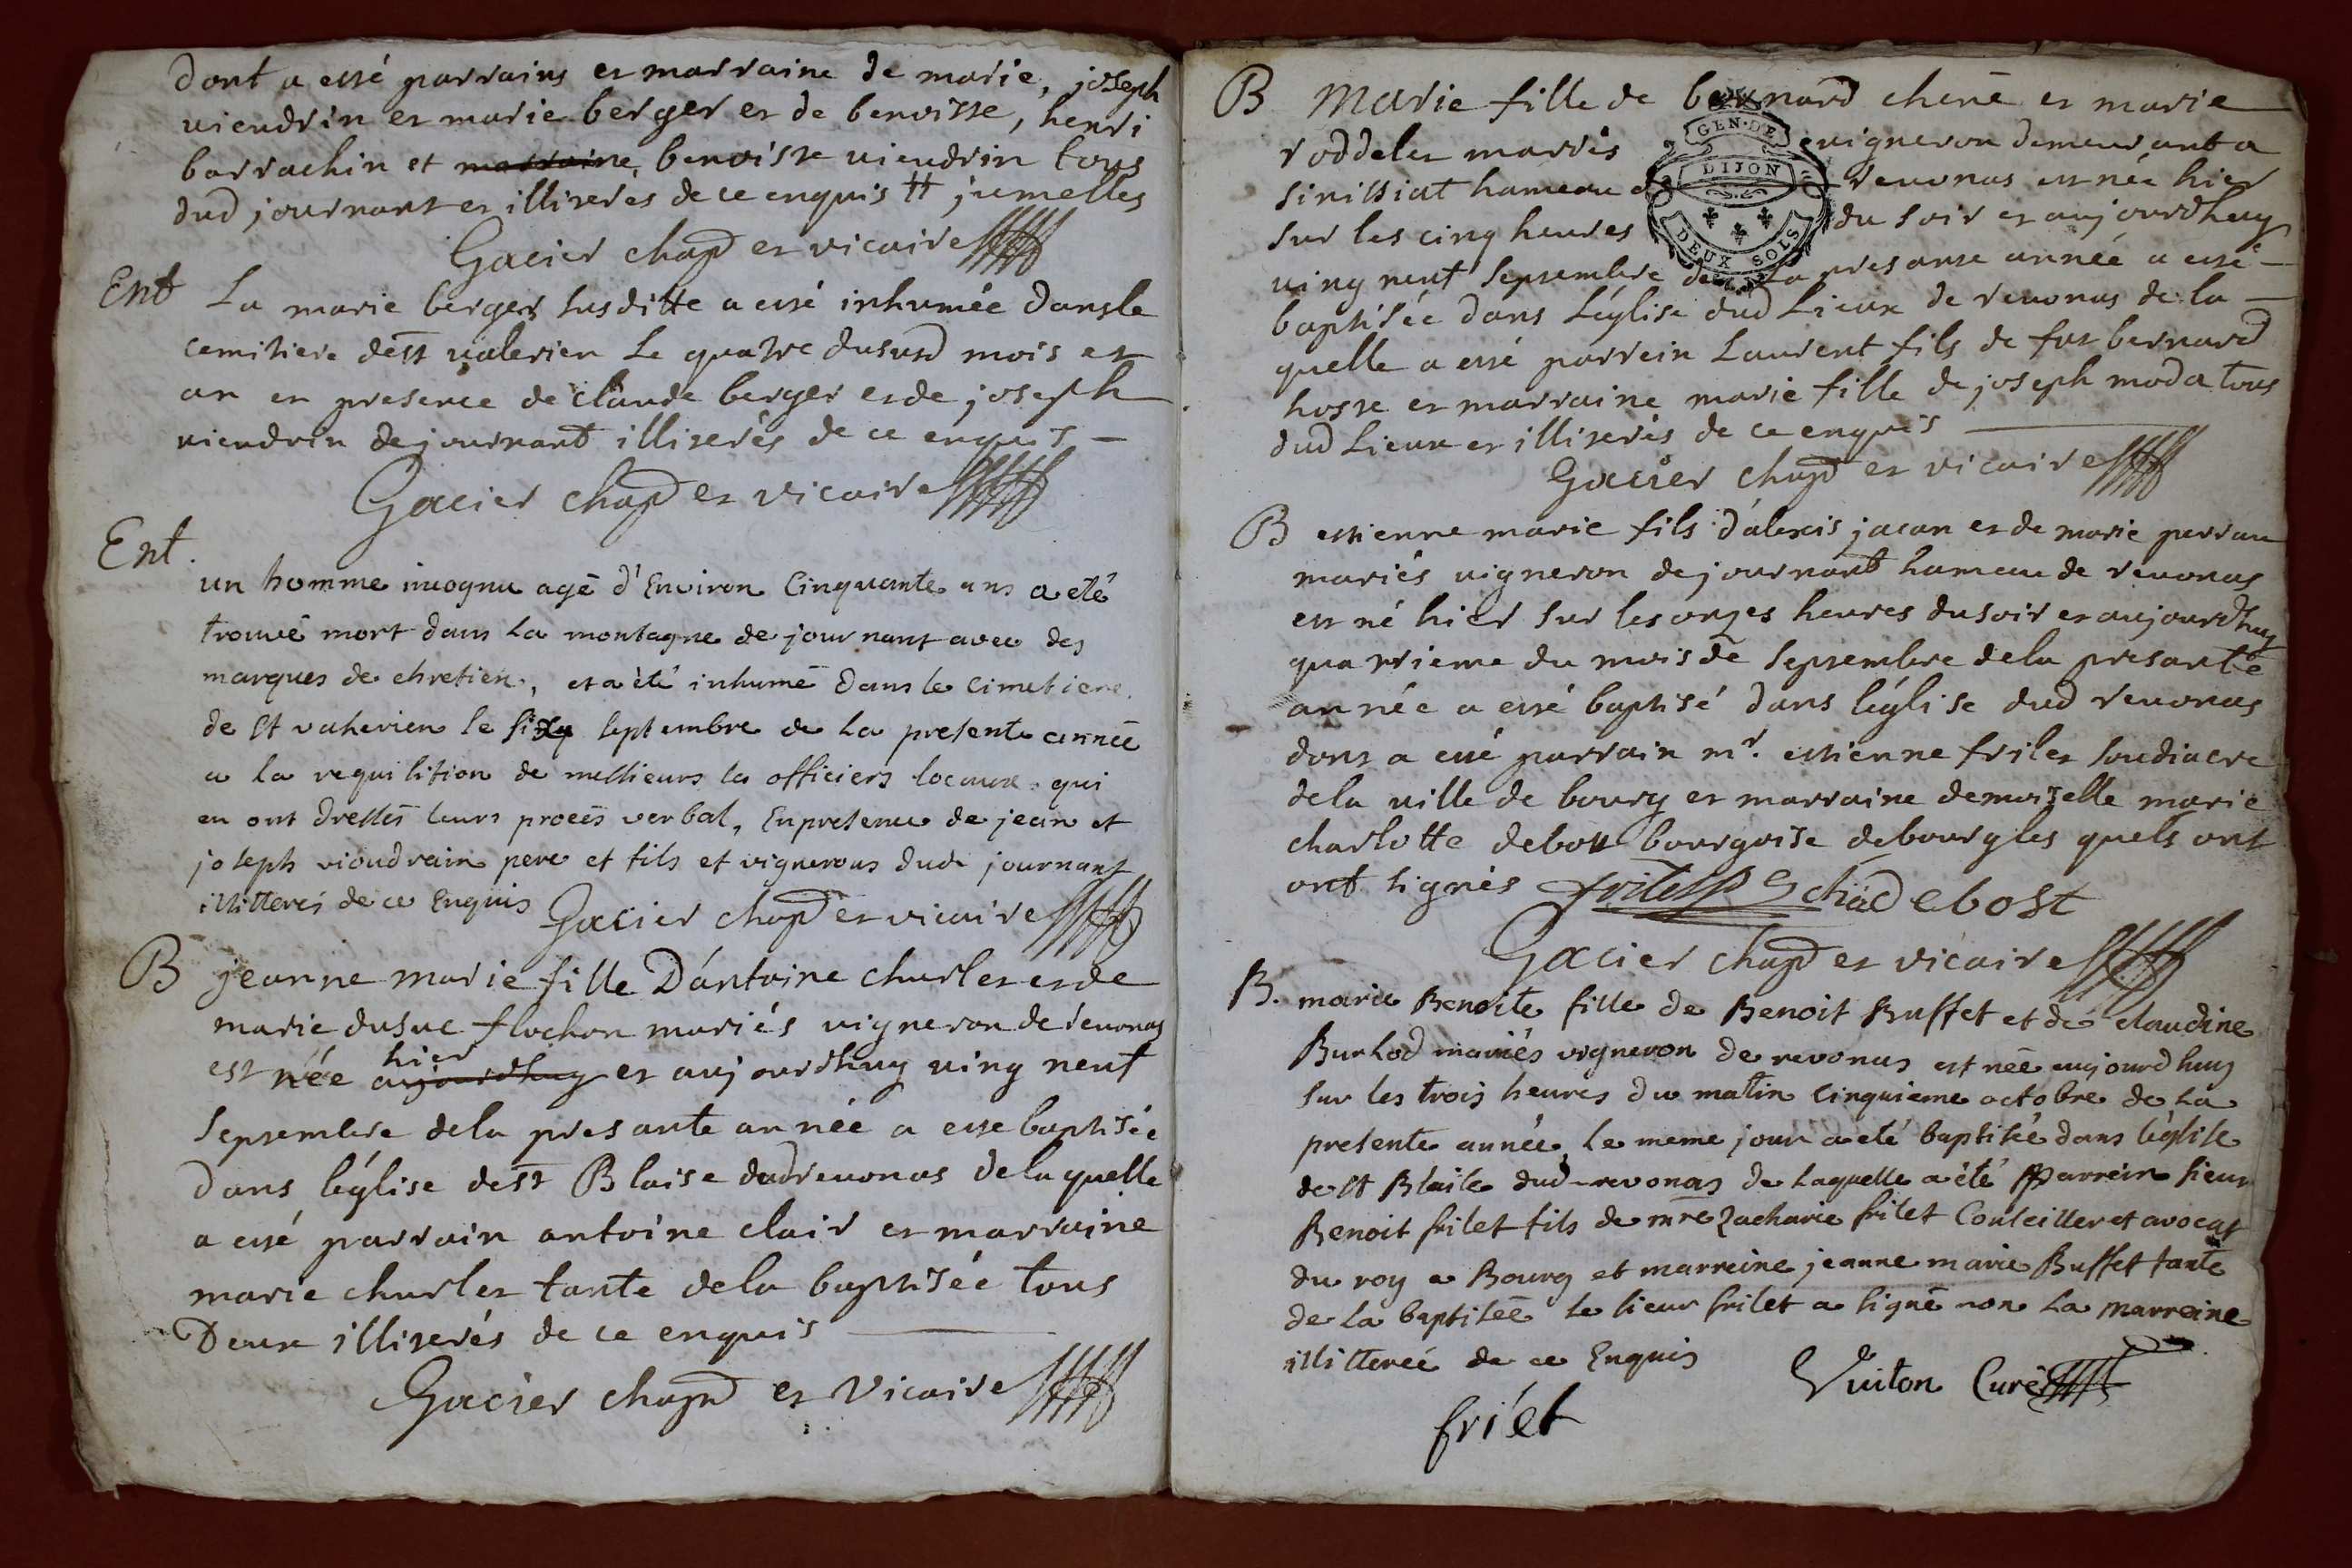 dont a esté parrains et marraine de marie, joseph
uiendrin et marie berger et de benoisse, henri
barrachin et marraine, benoiste uiendrin tous
dud journant et illiterés de ce enquis tt jumelles
Gacier chap et vicaire
Ent La marie berger susditte a esté inhumée dans le
cemitiere de st valerien le quatre dususd mois et
an en presence de claude berger et de joseph
uiendrin de journant illiterés de ce enquis
Gacier chap et vicaire
Ent
un homme incognu agé d'Environ Cinquante ans a eté
trouvé mort dans la montagne de journant avec des
marques de chretien, et a été inhumé dans le cimetiere
de st valerien le six septembre de la presente année
a la requisition de messieurs les officiers locaux qui
en ont dressés leurs procés verbal, En presence de jean et
joseph vioudrain pere et fils et vignerons dud journant
illitterés de ce Enquis Gacier chap et vicaire
B jeanne marie fille D'antoine charles et de
marie dusuc flochon mariés uigneron de reuonas
est née aujourdhuy hier et aujourdhuy uing neuf
septembre dela presante année a esse baptisée
dans l'église de st Blaise dud reuonas de la quelle
a esté parrain antoine clair et marraine
marie charles tante dela baptisée tous
Deux illiterés de ce enquis
Gacier chap et Vicaire
B Marie fille de bernard chene et marie
roddeles marrés uigneron demeurant a
sinissiat hameau de reuonas est née hier
sur les cinq heures du soir et aujourdhuy
uing neuf septembre de la presante année a esté
baptisée dans L'église dud Lieux de reuonas de la
quelle a esté parrein Laurent fils de fut bernard
hosse et marraine marie fille de joseph moda tous
dud Lieux et illiterés de ce enquis
Gacier chap et vicaire
B estienne marie fils d'alexis jacan et de marie perran
mariés uigneron de journant hameau de reuonas
est né hier sur les onzes heures du soir et aujourdhuy
quatrieme du mois de septembre dela presante
année a esté baptisé dans l'église dud reuonas
dont a esté parrain mr. estienne frilet soudiacre
dela uille de bourg et marraine demoiselle marie
charlotte debost bourgoise de bourg les quels ont
ont signés frilet debost
Gacier chap et vicaire
B. marie Benoite fille de Benoit Buffet et de claudine
Burhod mariés vigneron de revonas est née aujourd huy
sur les trois heures du matin Cinquieme octobre de la
presente année, le meme jour a eté baptisée dans l'église
de st Blaise dud revonas de laquelle a été parrein sieur
Benoit frilet fils de mre Zacharie frilet Conseiller et avocat
du roy a Bourg et marreine jeanne marie Buffet tante
de la baptisée le sieur frilet a signé non la marreine
illitterée de ce Enquis
Vuiton Curé
frilet
GEN·DE
DIJON
DEUX SOLS